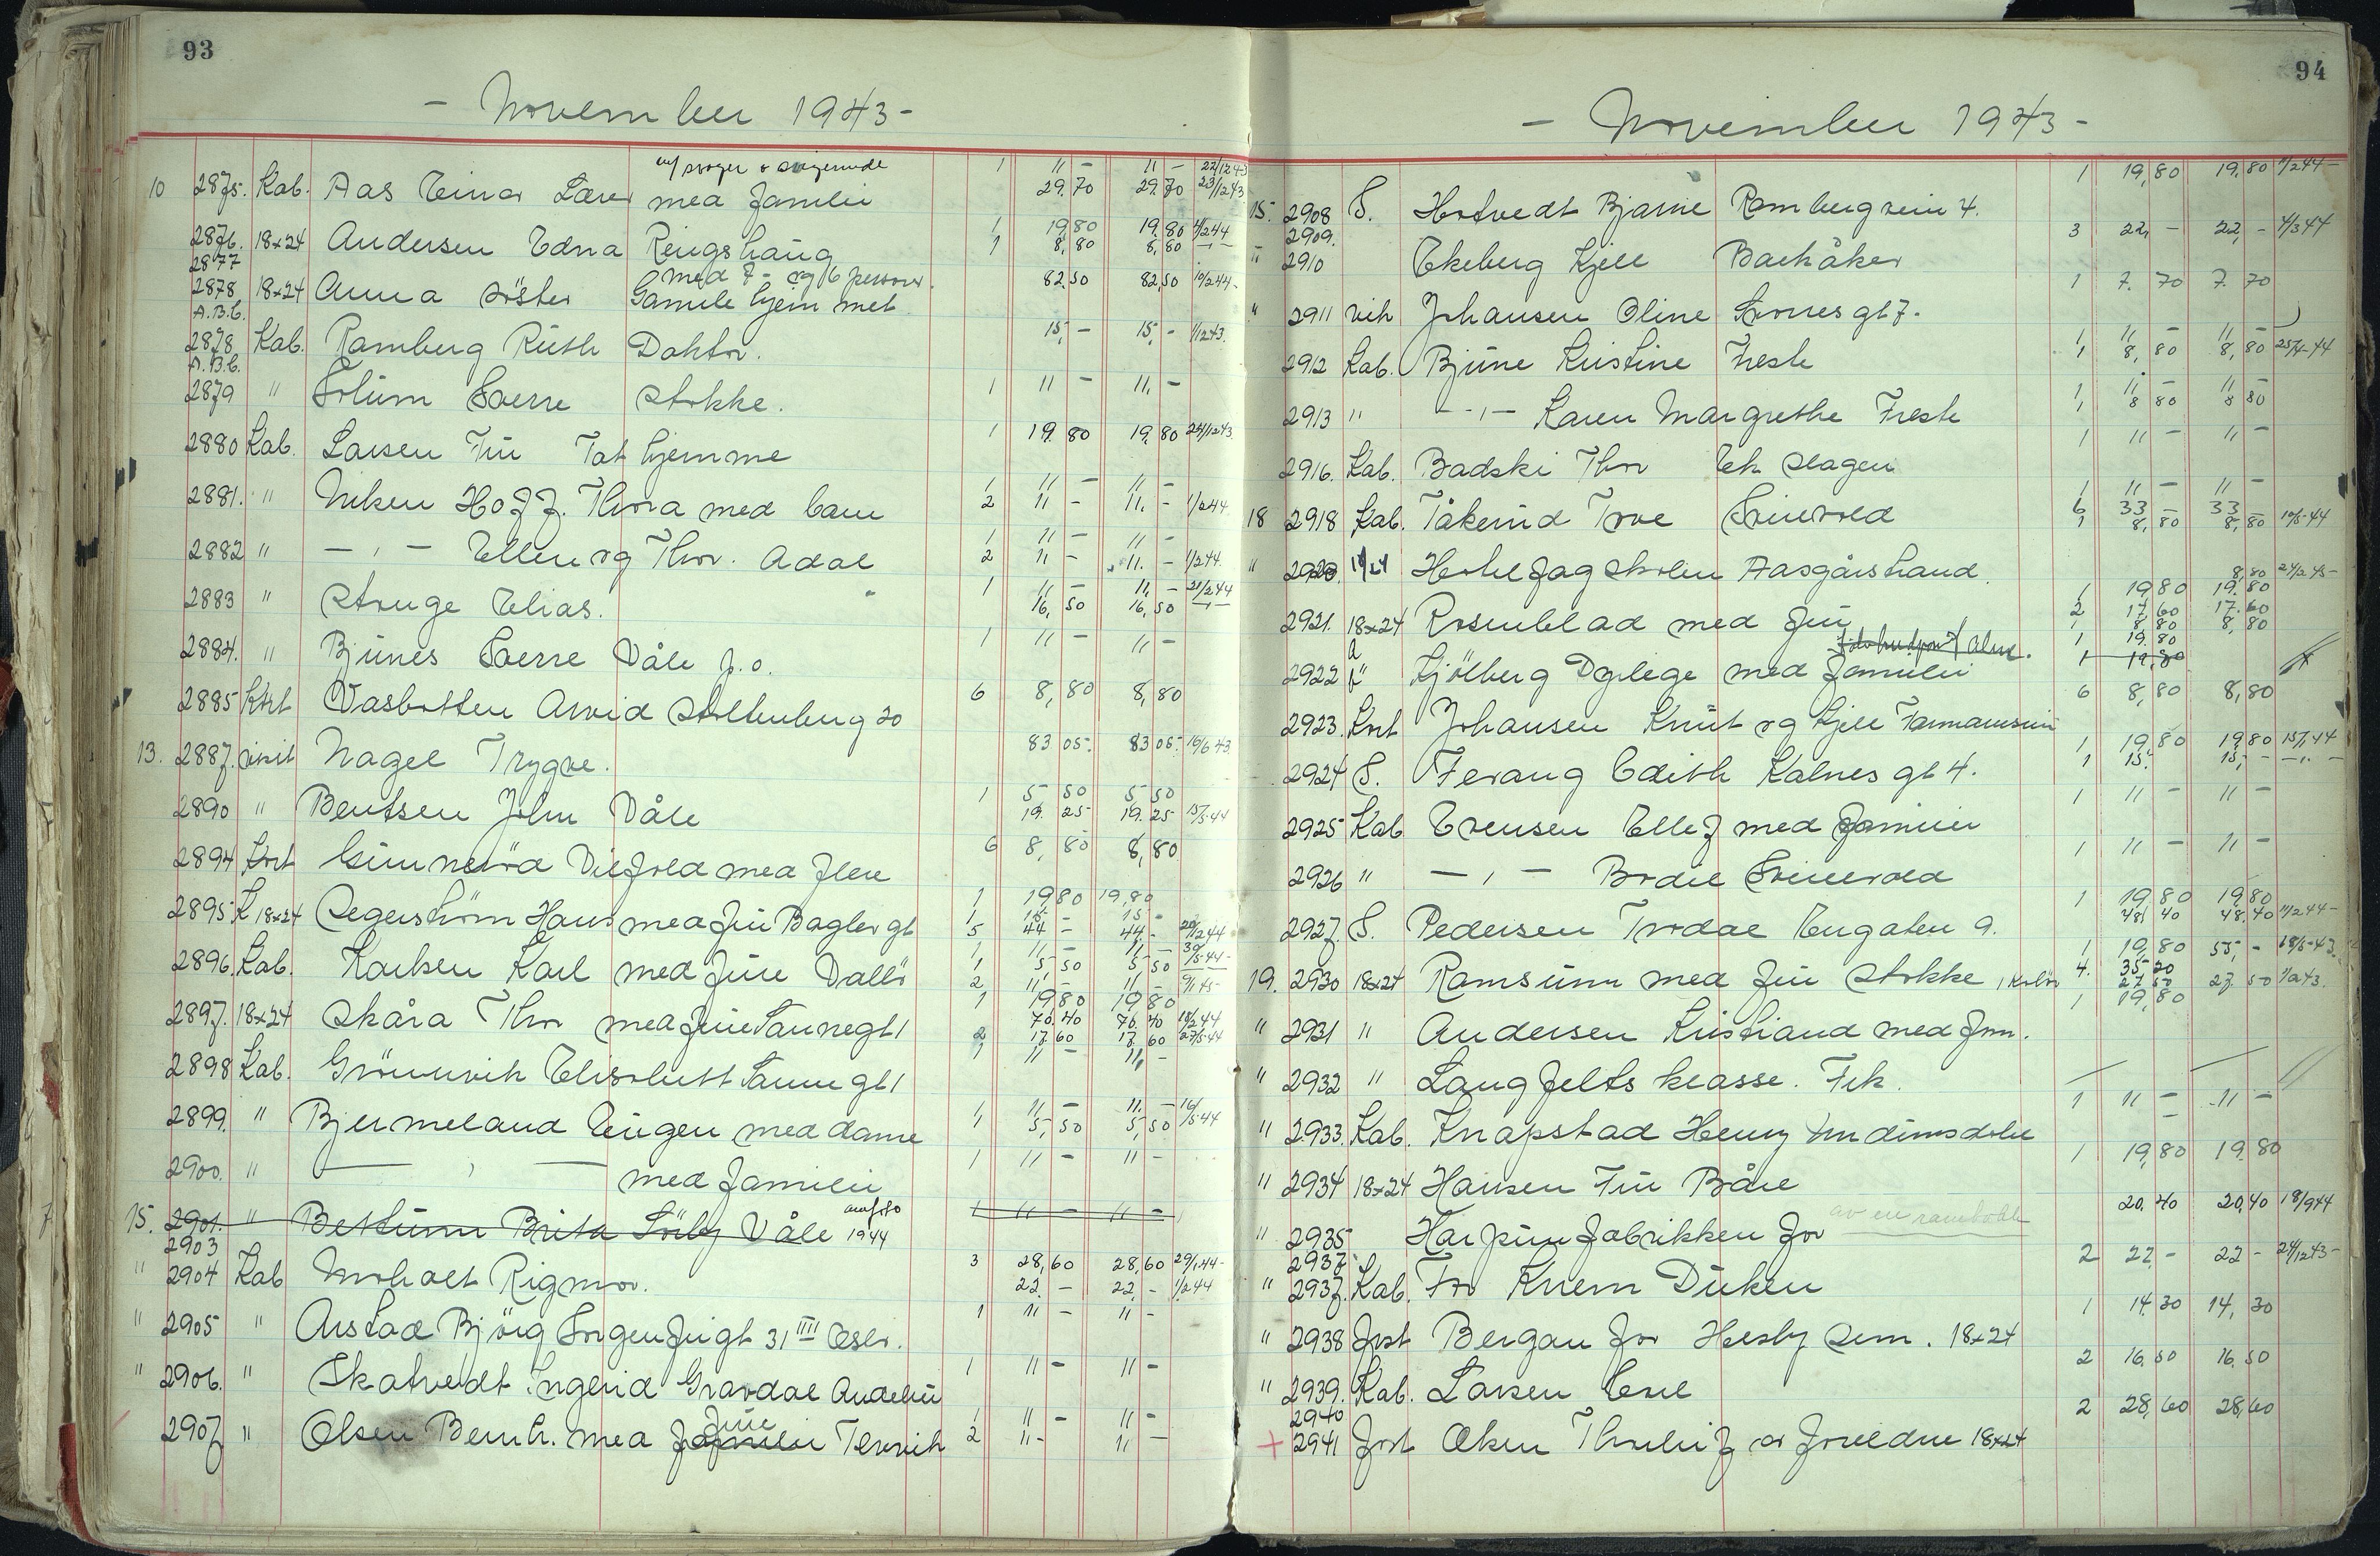 93
- November 1943 -
m/ svoger & svigerinde 1 11 - 11 - 22/12 43
10 2875. Kab. Aas Einar Lærer med familie 29.70 29.70 23/12 43
2876. 18x24 Andersen Edna Ringshaug 1 19,80 19,80 4/2 44
2877 1 8,80 8,80
med 7- og 6 personer.
2878 18x24 Anna söster Gamle hjem met 82.50 82,50 10/2 44-
A.B.C.
2878 Kab. Ramberg Ruth Doktor. 15,- 15,- 1/12 43.
A.B.C.
2879 " Solum Sverre Stokke. 1 11 - 11, -
2880 Kab. Larsen Fru Tat hjemme 1 19.80 19,80 24/12 43.
2881. " Niken Hoff. Thora med barn 1 11 - 11 -
2 11 - 11. - 1/2 44
2882 " - " - Ellen og Thor. Adal 1 11 - 11 -
2 11 - 11. - 1/2 44.
2883 " Stange Elias. 1 11 - 11, - 21/2 44
16,50 16,50 - " -
2884. " Bjunes Sverre Våle p.o. 1 11 - 11 -
2885 Kort Vasbotten Arvid Stoltenberg 20 6 8,80 8,80
13. 2887. visit Nagel Trygve. 83 05. 83 05. 10/6 43.
2890 " Bentsen John Våle 1 5 50 5 50
19.25 19.25 15/5-44
2894 Kort Gunneröd Vilfred med flere 6 8,80 8,80
2895 K 18x24 Segerström Hans med fru Bagler gt 1 19,80 19,80
1 15 - 15 -
5 44 - 44 -
2896. Kab. Karlsen Karl med frue Dallö 1 11 - 11 -
1 5 50 5 50
2 11,- 11 -
2897. 18x24 Skåra Thor med frue Tannegt 1 1 19 80 19 80
70.40 70,40 18/2 44
2 17.60 17,60 27/5-44
2898 Kab. Grönnvik Elisabett Tannegt 1 1 11 - 11, -
2899. " Bjermeland Eugen med dame 1 11 - 11. -
1 5,50 5,50 16/5-44
2900. " — " — med familie 1 11 - 11 -
15. 2901. " Bettum Brita Söeby Våle 1944 1 11 - 11 -
2903
" 2904 Kab Moholt Rigmor. 3 28,60 28,60 29/1 44-
22,- 22,- 1/2 44
" 2905 " Arstad Björg Sorgenfrigt 31 IIII Oslo. 1 11 - 11 -
" 2906. " Skatvedt Ingerid Gravdal Andebu 1 11 - 11 -
2907 " Olsen Bernh. med familie frue Tenvik 1 11 - 11 -
2 11 - 11 -
94
- November 1943 -
15. 2908 S. Hotvedt Bjarne Rambergvein 4. 1 19,80 19,80 7/2 44-
2909.
" 2910 Ekeberg Kjell Barkåker 3 22, - 22, - 4/3 44
" 2911 vih Johansen Oline Svones gt 7. 1 7.70 7.70
2912 Kab. Bjune Kristine Freste 1 11, - 11, -
1 8,80 8,80 25/4-44
2913 " - " - Karen Margrethe Freste 1 11 - 11 -
1 8 80 8 80
2916. Kab. Badski Thor Ek Slagen 1 11 - 11 -
18 2918 Kab. Tåkerud Tove Svinevold 1 11 - 11 -
6 33 - 33 -
1 8,80 8,80 10/5-44
" 2920. 18/24 Husfagskolen Aasgårstrand. 8,80 24/2 45-
2921. 18x24 Rosenblad med fru 1 19,80 19,80
2 17,60 17.60
8,80 8,80
2922 Kjölberg Dyrlege med familie 1 19.80
1 19,80
2923. Kort Johansen Knut og Kjell Farmannsvein 6 8,80 8,80
2924 S. Fevang Edith Kalnes gt 4. 1 19,80 19,80 15/1 44
1 15. 15, - - " -
2925 Kab Evensen Ellef med familie 1 11 - 11 -
2926 " - " - Bodil Svinevold 1 11 - 11 -
2927. S. Pedersen Trodal Engaten 9. 1 19,80 19,80
48,40 48.40 11/2 44-
19. 2930 18x24 Ramsum med fru Stokke, kolör 1 19,80 55, - 18/5-43
4. 35 20
27 50 27.50 1/2 43.
" 2931 " Andersen Kristiand med fru. 1 19,80
" 2932 " Langfelts klasse. Frk.
" 2933. Kab. Knapstad Henry Undrumsdale 1 11 - 11 -
" 2934 18x24 Hansen Fru Båre 1 19,80 19.80
av en ramebolt
" 2935 Harpunfabrikken for 20.40 20,40 18/9 44
2937.
" 2937. Kab. Fro Knem Duken 2 22, - 22 - 24/12 43-
" 2938 Post Bergan for Hesby Sem. 18x24 1 14.30 14,30
" 2939. Kab. Larsen Erel 2 16.50 16.50
2940
+ 2941 Post Olsen Thorleif av foreldre 18x24 2 28,60 28,60